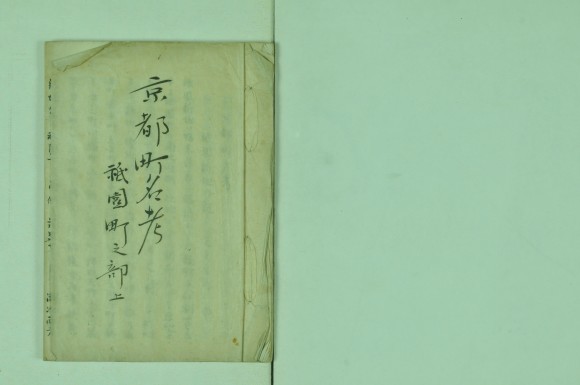 京都町名考
祇園町之部上